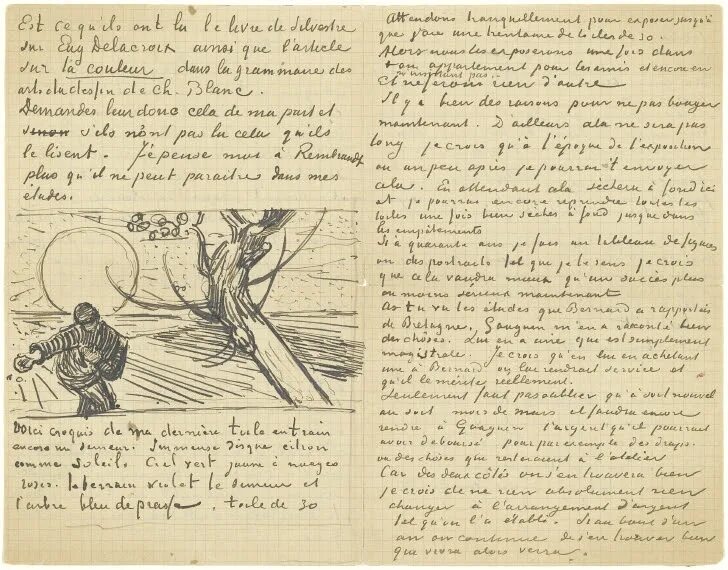 Est ce qu'ils ont lu le livre de Silvestre
sur Eug Delacroix ainsi que l'article
sur la couleur dans la grammaire des
arts du dessin de Ch. Blanc.
Demandes leur donc cela de ma part et
sinon s'ils n'ont pas lu cela qu'ils
le lisent. J'epense moi à Rembrandt
plus qu'il ne peut paraitre dans mes
études.
Voici croquis de ma dernière toile en train
encore un semeur. Immense disque citron
comme soleil. Ciel vert jaune à nuages
roses. le terrain violet le semeur et
l'arbre bleu de prusse. toile de 30
Attendons tranquillement pour exposer jusqu'à
que j'aie une trentaine de toiles de 30.
Alors nous les exposerons une fois dans
ton appartement pour les amis et encore en
n'insistant pas
Et ne ferons rien d'autre
Il y a bien des raisons pour ne pas bouger
maintenant. D'ailleurs cela ne sera pas
long je crois qu'à l'époque de l'exposition
ou un peu après je pourrai t'envoyer
cela. En attendant cela sechera à fond ici
et je pourrai encore reprendre toutes les
toiles une fois bien sèches à fond jusque dans
les empâtements
Si à quarante ans je fais un tableau de figures
ou des portraits tel que je le sens je crois
que cela vaudra mieux qu'un succès plus
ou moins sérieux maintenant
As tu vu les études que Bernard a rapportés
de Bretagne, Gauguin m'en a raconté bien
des choses. Lui en a une qui est simplement
magistrale. Je crois qu'en lui en achetant
une à Bernard on lui rendrait service et
qu'il le mérite reellement.
Seulement faut pas oublier qu'à
au soir mois de mars il faudra encore
rendre à Gauguin l'argent qu'il pourrait
avoir deboursé pour par exemple des draps.
ou des choses qui resteraient à l'atelier
Car des deux côtés on s'en trouvera bien
je crois de ne rien absolument rien
changer à l'arrangement d'argent
tel qu'on l'a établi. Si au bout d'un
an on continue de s'en trouver bien
que verra alors verra.